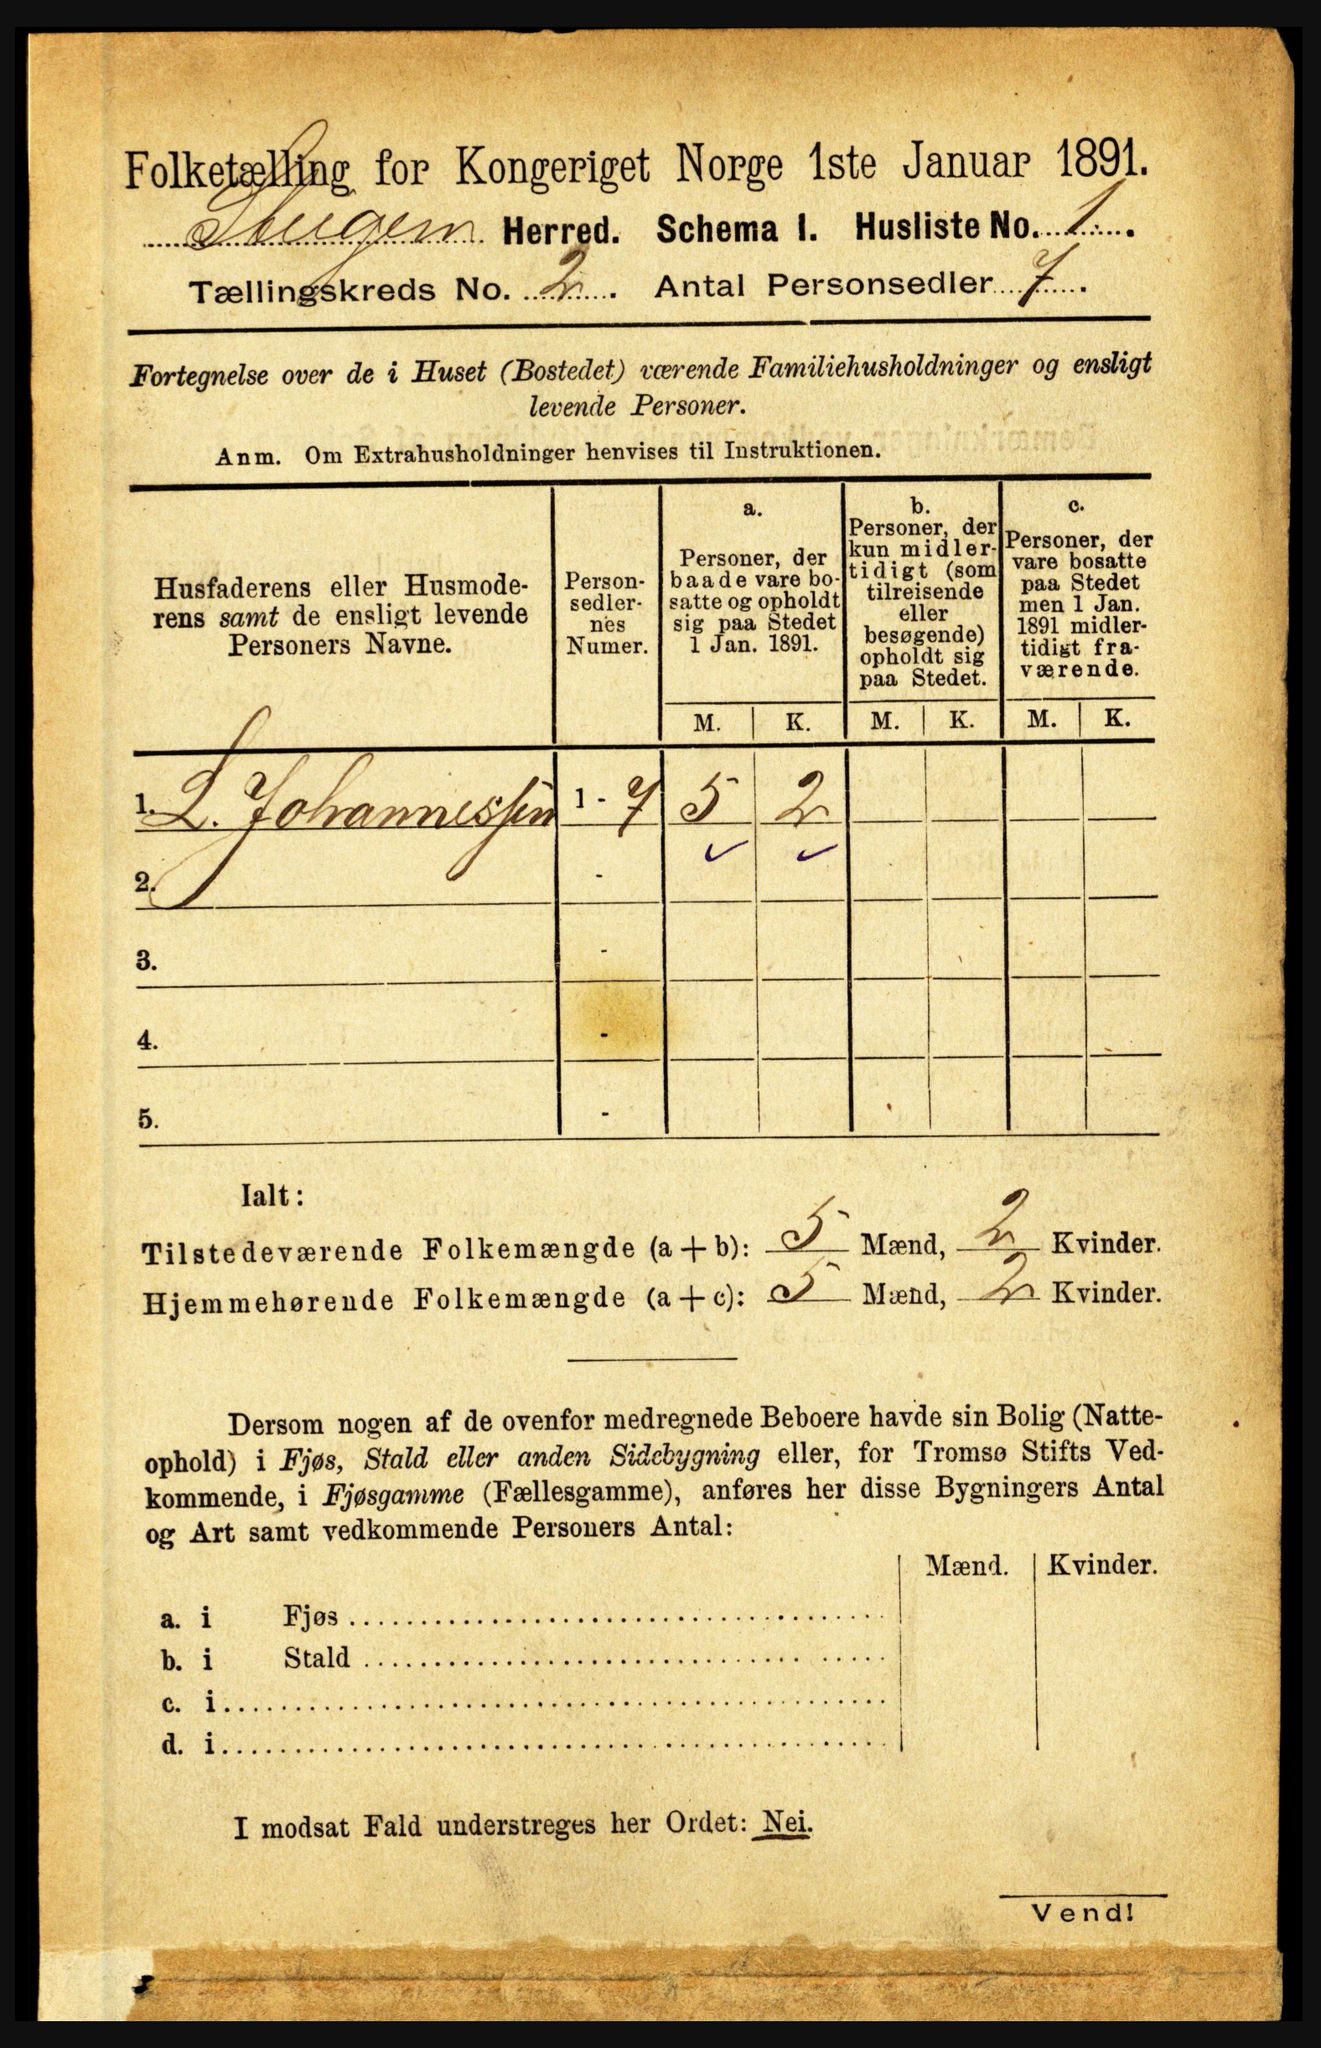 Folketælling for Kongeriget Norge 1ste Januar 1891.
Herred. Schema I. Husliste No. 1.
Tællingskreds No. 2. Antal Personsedler 7.
Fortegnelse over de i Huset (Bostedet) værende Familiehusholdninger og ensligt
levende Personer.
Anm. Om Extrahusholdninger henvises til Instruktionen.
Husfaderens eller Husmode-
rens samt de ensligt levende
Personers Navne.
Person-
sedler-
nes
Numer.
a.
Personer, der
baade vare bo-
satte og opholdt
sig paa Stedet
1 Jan. 1891.
b.
Personer, der
kun midler-
tidigt (som
tilreisende
eller
besøgende)
opholdt sig
paa Stedet.
c.
Personer, der
vare bosatte
paa Stedet
men 1 Jan.
1891 midler-
tidigt fra-
værende.
M. K. M. K. M. K.
1. L. Johannessen 1 - 7 5 2
✓ ✓
2. -
3. -
4. -
5. -
Ialt:
Tilstedeværende Folkemængde (a + b): 5 Mænd, 2 Kvinder.
Hjemmehørende Folkemængde (a + c): 5 Mænd, 2 Kvinder.
Dersom nogen af de ovenfor medregnede Beboere havde sin Bolig (Natte-
ophold) i Fjøs, Stald eller anden Sidebygning eller, for Tromsø Stifts Ved-
kommende, i Fjøsgamme (Fællesgamme), anføres her disse Bygningers Antal
og Art samt vedkommende Personers Antal:
Mænd. Kvinder.
a. i Fjøs
b. i Stald
c. i
d. i
I modsat Fald understreges her Ordet: Nei.
Vend!